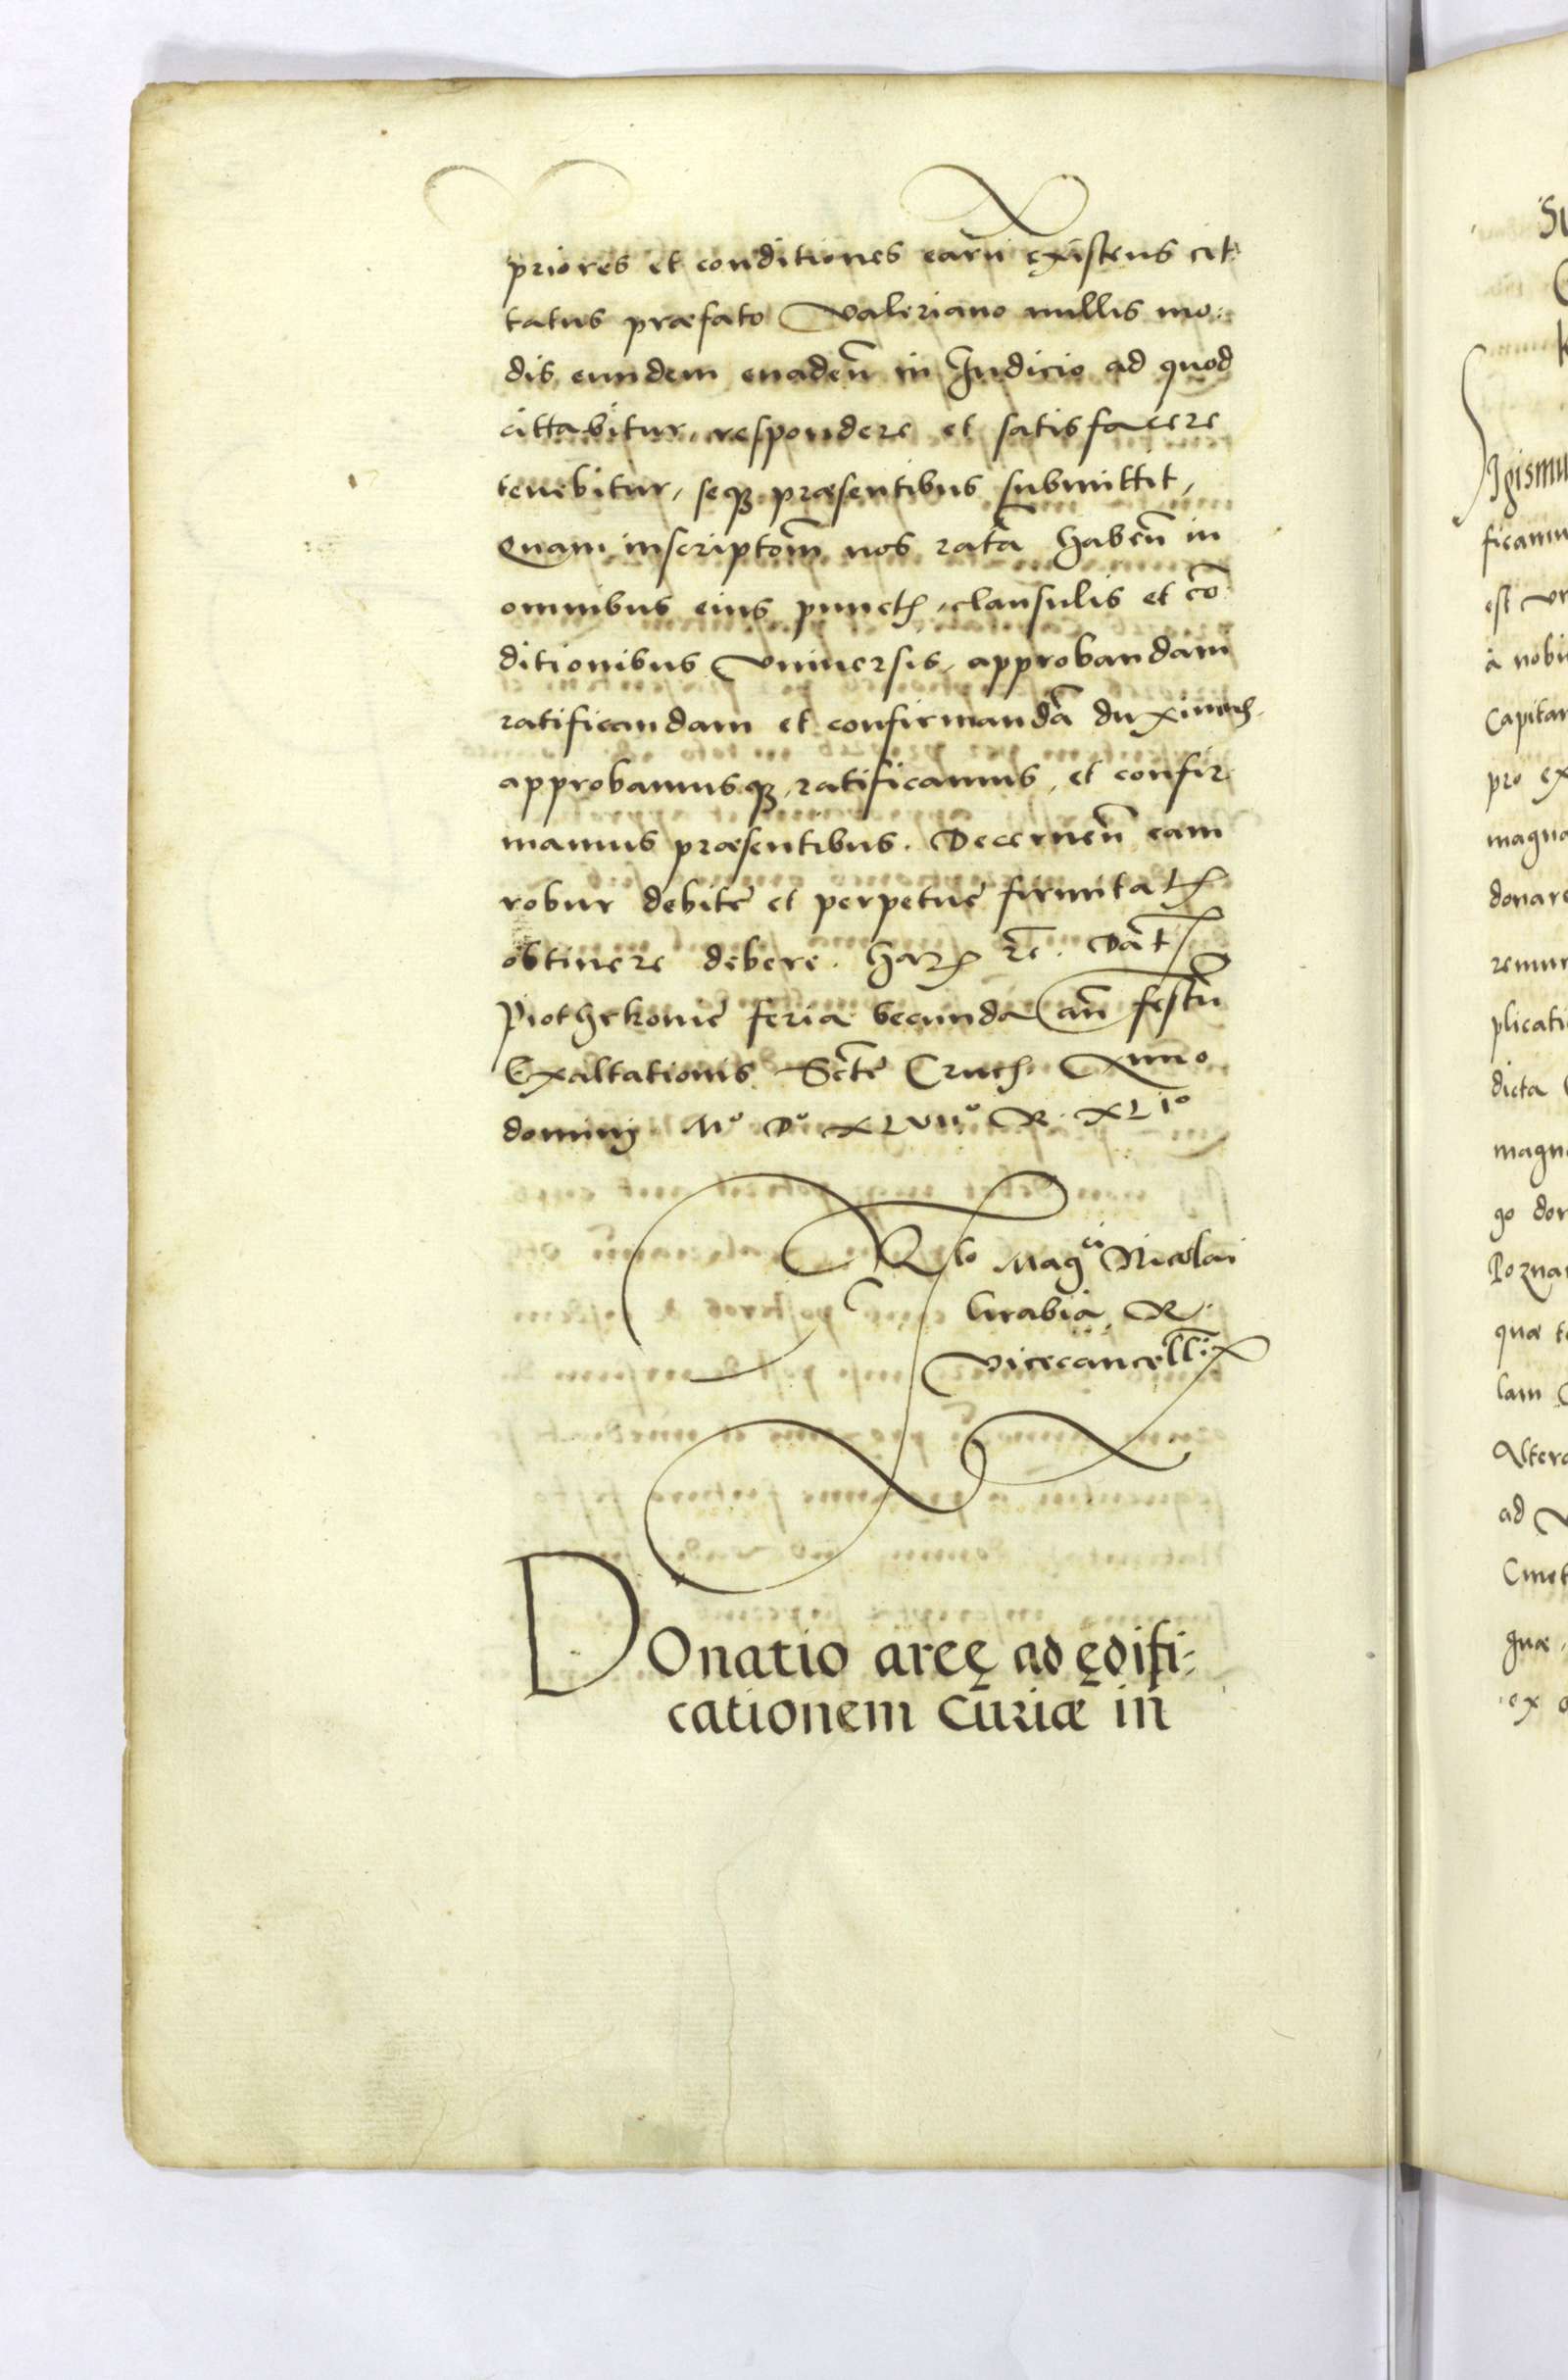 priores et conditiones earū existens cit-
tatus præfato Valeriano nullis mo-
dis eundem euadeñ in Judicio ad quod
cittabitur, respondere et satisfacere
tenebitur, seqꝫ præsentibus submittit,
Quam inscriptoēm nos ratā habeñ in
omnibus eius punctꝭ, clausulis et cō
ditionibus vniuersis, approbandam
ratificandam et confirmandā duximꝰ.
approbamusqꝫ, ratificamus, et confir
mamus præsentibus. Decerneñ eam
robur debite et perpetue firmitatꝭ
obtinere debere. Harꝭ rē. Datꝭ
Piothrkouie feria secunda añ festū
Exaltationis Scte Crucꝭ Anno
domini Mº Dº XLVIIº R. XLIº
Rlo Magci Nicolai
Grabia R.
Vicecancellꝭ
DOnatio areę ad ędifi-
cationem Curiæ in
Igismu
ficamu
est vn
à nobi
Capitan
pro ex
magna
donare
remun
plicati
dicta
magn
go don
Pozna
quæ t
lam
Altera
ad
Cmet
quæ
ex